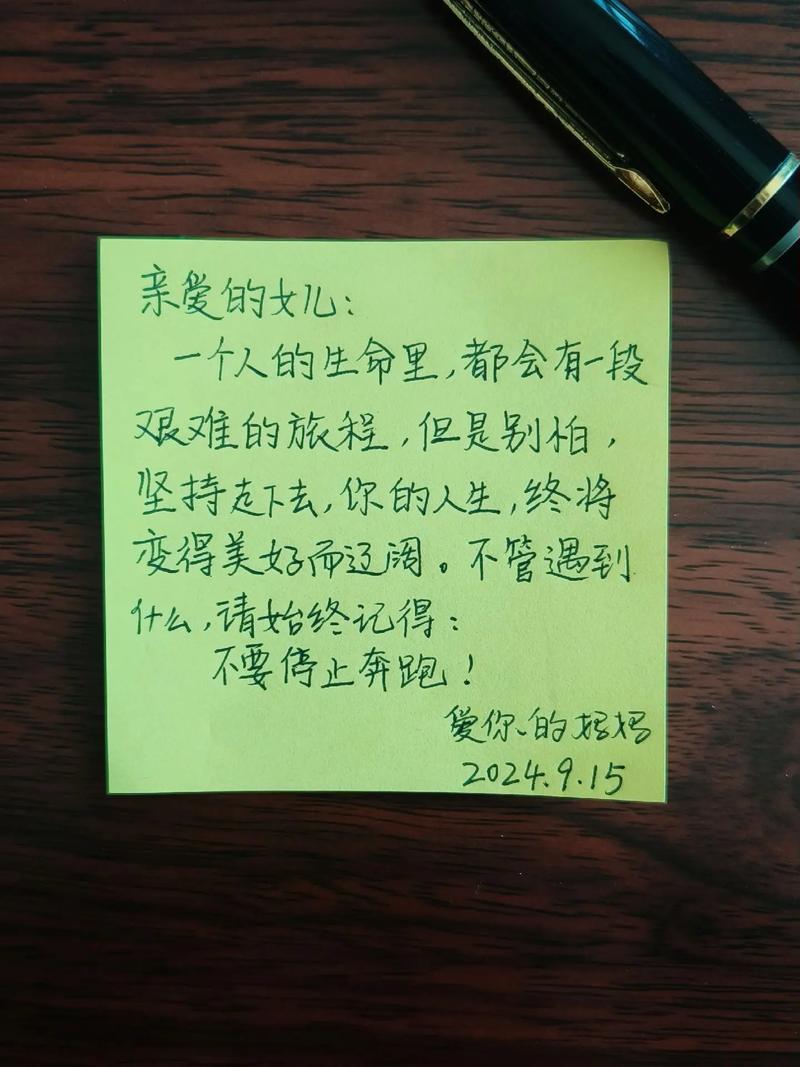 亲爱的女儿：
一个人的生命里，都会有一段
艰难的旅程，但是别怕，
坚持走下去，你的人生，终将
变得美好而辽阔。不管遇到
什么，请始终记得：
不要停止奔跑！
爱你的妈妈
2024.9.15